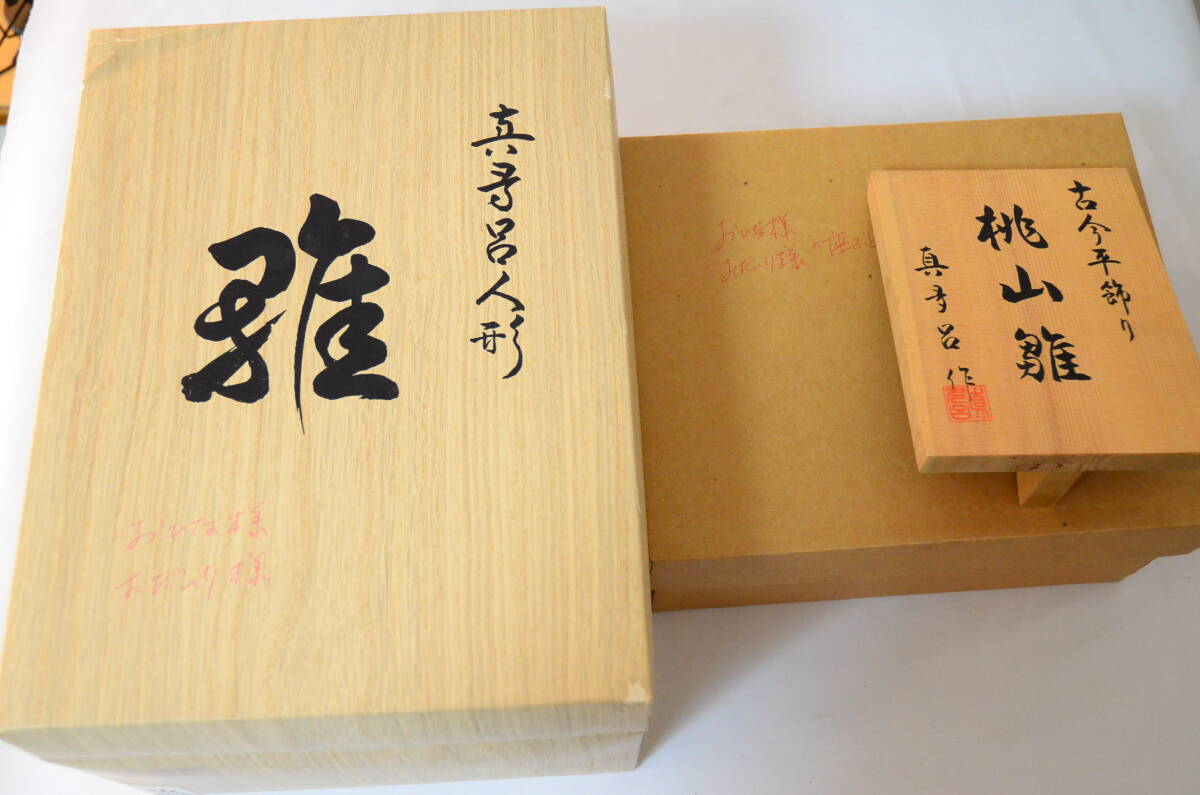 真多呂人形
雛
おひな様
おだいり様
おひな様
おだいり様
の座ぶと
古今平飾り
桃山雛
真多呂作